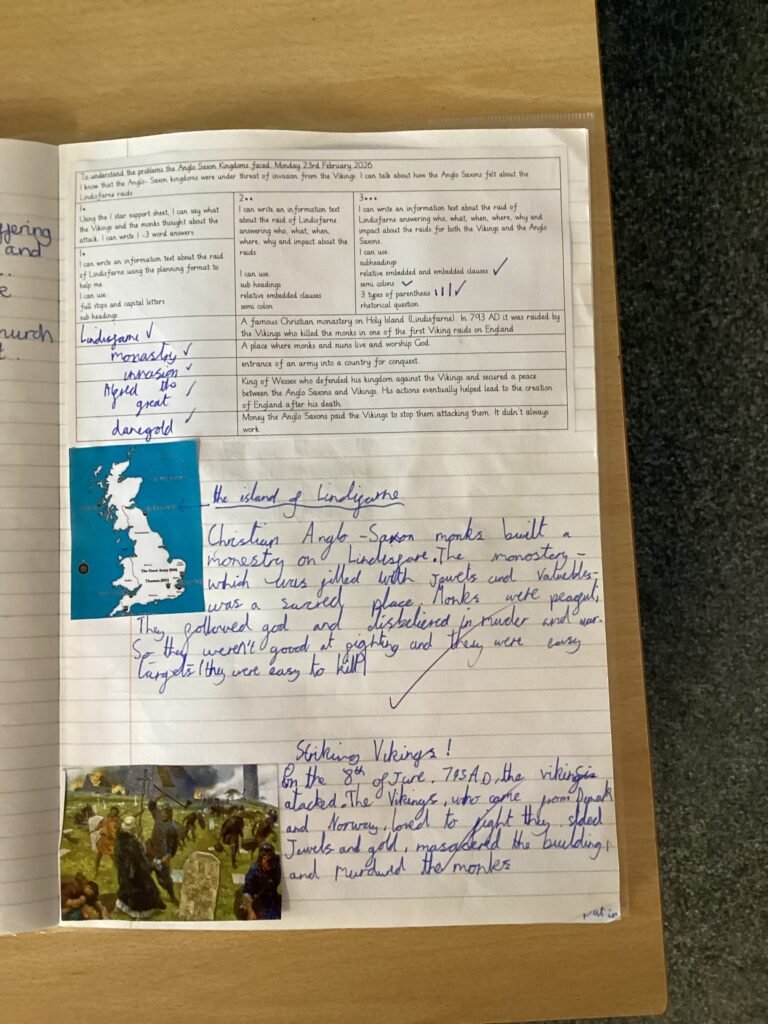 ffering
and
e
church
t..
To understand the problems the Anglo Saxon Kingdoms faced. Monday 23rd February 2026
I know that the Anglo- Saxon kingdoms were under threat of invasion from the Vikings. I can talk about how the Anglo Saxons felt about the
Lindisfarne raids.
1*
Using the 1 star support sheet, I can say what
the Vikings and the monks thought about the
attack. I can write 1 -3 word answers
1*
I can write an information text about the raid
of Lindisfarne using the planning format to
help me
I can use:
full stops and capital letters
sub headings
2**
I can write an information text
about the raid of Lindisfarne
answering who, what, when,
where, why and impact about the
raids
I can use:
sub headings
relative embedded clauses
semi colon
3***
I can write an information text about the raid of
Lindisfarne answering who, what, when, where, why and
impact about the raids for both the Vikings and the Anglo
Saxons.
I can use:
subheadings
relative embedded and embedded clauses
semi colons
3 types of parenthesis
rhetorical question.
Lindisfarne
A famous Christian monastery on Holy Island (Lindisfarne). In 793 AD it was raided by
the Vikings who killed the monks in one of the first Viking raids on England
monastry
A place where monks and nuns live and worship God.
invasion
entrance of an army into a country for conquest.
Alfred the
great
King of Wessex who defended his kingdom against the Vikings and secured a peace
between the Anglo Saxons and Vikings. His actions eventually helped lead to the creation
of England after his death.
danegold
Money the Anglo Saxons paid the Vikings to stop them attacking them. It didn't always
work
the island of Lindisfarne
Christian Anglo -Saxon monks built a
monestry on Lindisfare. The monostery -
which was filled with Jewels and valuebles-
was a sacred place. Monks were peaful,
They followed god and disbelieved in murder and war.
So they weren't good at fighting and they were easy
targets (they were easy to kill)
Striking Vikings!
On the 8th of June, 793 AD, the vikings
atacked. The Vikings, who came from
and Norway, loved to fight they
Jewels and gold, masacered the building,
and the monks